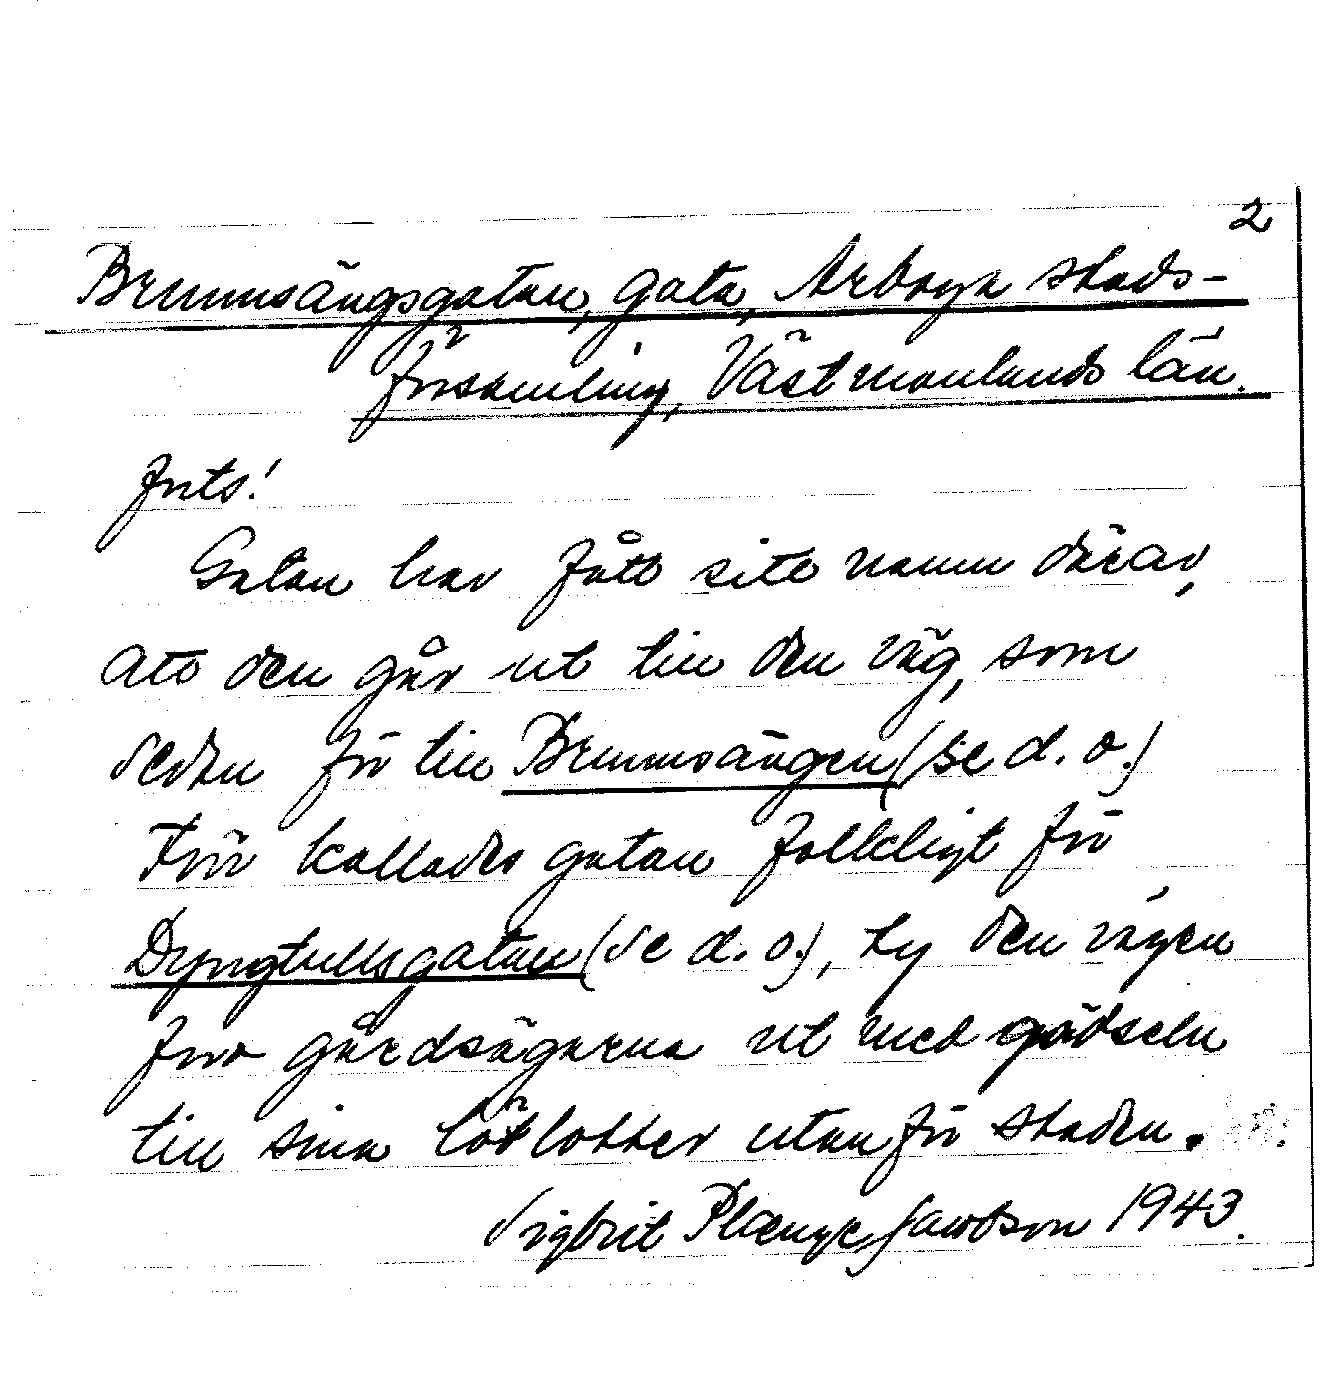 2
Brunnsängsgatan, gata, Arboga stads-
församling, Västmanlands län.
forts!
Gatan har fått sitt namn därav,
att den går ut till den väg, som
sedan för till Brunnsängen (se d. o.)
Förr kallades gatan folkligt för
Dyngtullsgatan (se d. o.), ty den vägen
foro gårdsägarna ut med gödseln
till sina lotter utanför staden.
Sigbrit Plænge Jacobson 1943.